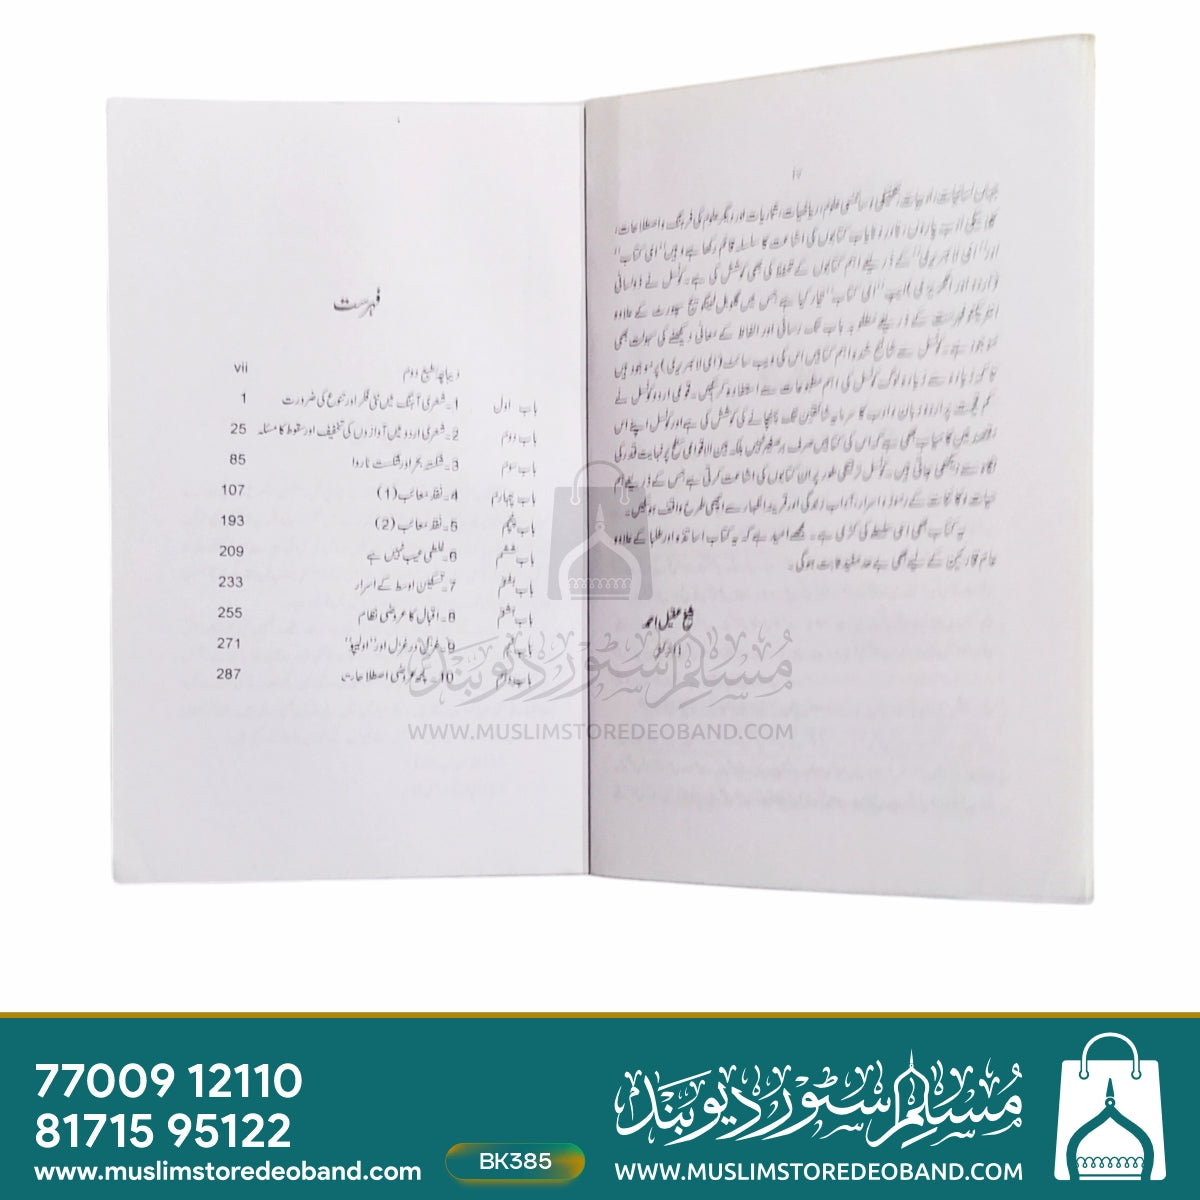 iv
جہاں لسانیات، ادبیات، تکنیکی، سائنسی علوم، ریاضیات، شماریات اور دیگر علوم کی فرہنگ و اصطلاحات،
کلاسیکی ادب پاروں، نادر و نایاب کتابوں کی اشاعت کا سلسلہ قائم رکھا ہے وہیں ''ای کتاب''
اور ''ای لائبریری'' کے ذریعے اہم کتابوں کے تحفظ کی بھی کوشش کی ہے۔ کونسل نے ذولسانی
(اردو اور انگریزی) ایپ ''ای کتاب'' تیار کیا ہے جس میں گلوبل لینگویج سپورٹ کے علاوہ
انٹریکٹو فہرست کے ذریعے مطلوبہ باب تک رسائی اور الفاظ کے معانی دیکھنے کی سہولت بھی
موجود ہے۔ کونسل سے شائع شدہ اہم کتابیں اس کی ویب سائٹ (ای لائبریری) پر موجود ہیں
تاکہ زیادہ سے زیادہ لوگ کونسل کی اہم مطبوعات سے استفادہ کرسکیں۔ قومی اردو کونسل نے
کم قیمت پر اردو زبان و ادب کا سرمایہ شائقین تک پہنچانے کی کوشش کی ہے اور کونسل اپنے اس
مقصد میں کامیاب بھی ہے کہ اس کی کتابیں صرف برصغیر نہیں بلکہ بین الاقوامی سطح پر نہایت قدر کی
نگاہ سے دیکھی جاتی ہیں۔ کونسل ترجیحی طور پر ان کتابوں کی اشاعت کرتی ہے جس کے ذریعے ہم
حیات و کائنات کے رموز و اسرار، آداب زندگی اور قرینۂ اظہار سے اچھی طرح واقف ہوسکیں۔
یہ کتاب بھی اسی سلسلے کی کڑی ہے۔ مجھے امید ہے کہ یہ کتاب اساتذہ و طلبا کے علاوہ
عام قارئین کے لیے بھی بے حد مفید ثابت ہوگی۔
شیخ عقیل احمد
ڈائرکٹر
فہرست
دیباچہ طبع دوم vii
باب اول 1۔ شعری آہنگ میں نئی فکر اور تنوع کی ضرورت 1
باب دوم 2۔ شعری اردو میں آوازوں کی تخفیف اور سقوط کا مسئلہ 25
باب سوم 3۔ شکستہ بحر اور شکست ناروا 85
باب چہارم 4۔ نقد معائب (1) 107
باب پنجم 5۔ نقد معائب (2) 193
باب ششم 6۔ غلطی عیب نہیں ہے 209
باب ہفتم 7۔ تسکین اوسط کے اسرار 233
باب ہشتم 8۔ اقبال کا عروضی نظام 255
باب نہم 9۔ غزل در غزل اور 271
باب دہم 10۔ کچھ عروضی اصطلاحات 287
مسلم سٹور دیوبند
WWW.MUSLIMSTOREDEOBAND.COM
77009 12110
81715 95122
www.muslimstoredeoband.com
BK385
مسلم سٹور دیوبند
WWW.MUSLIMSTOREDEOBAND.COM